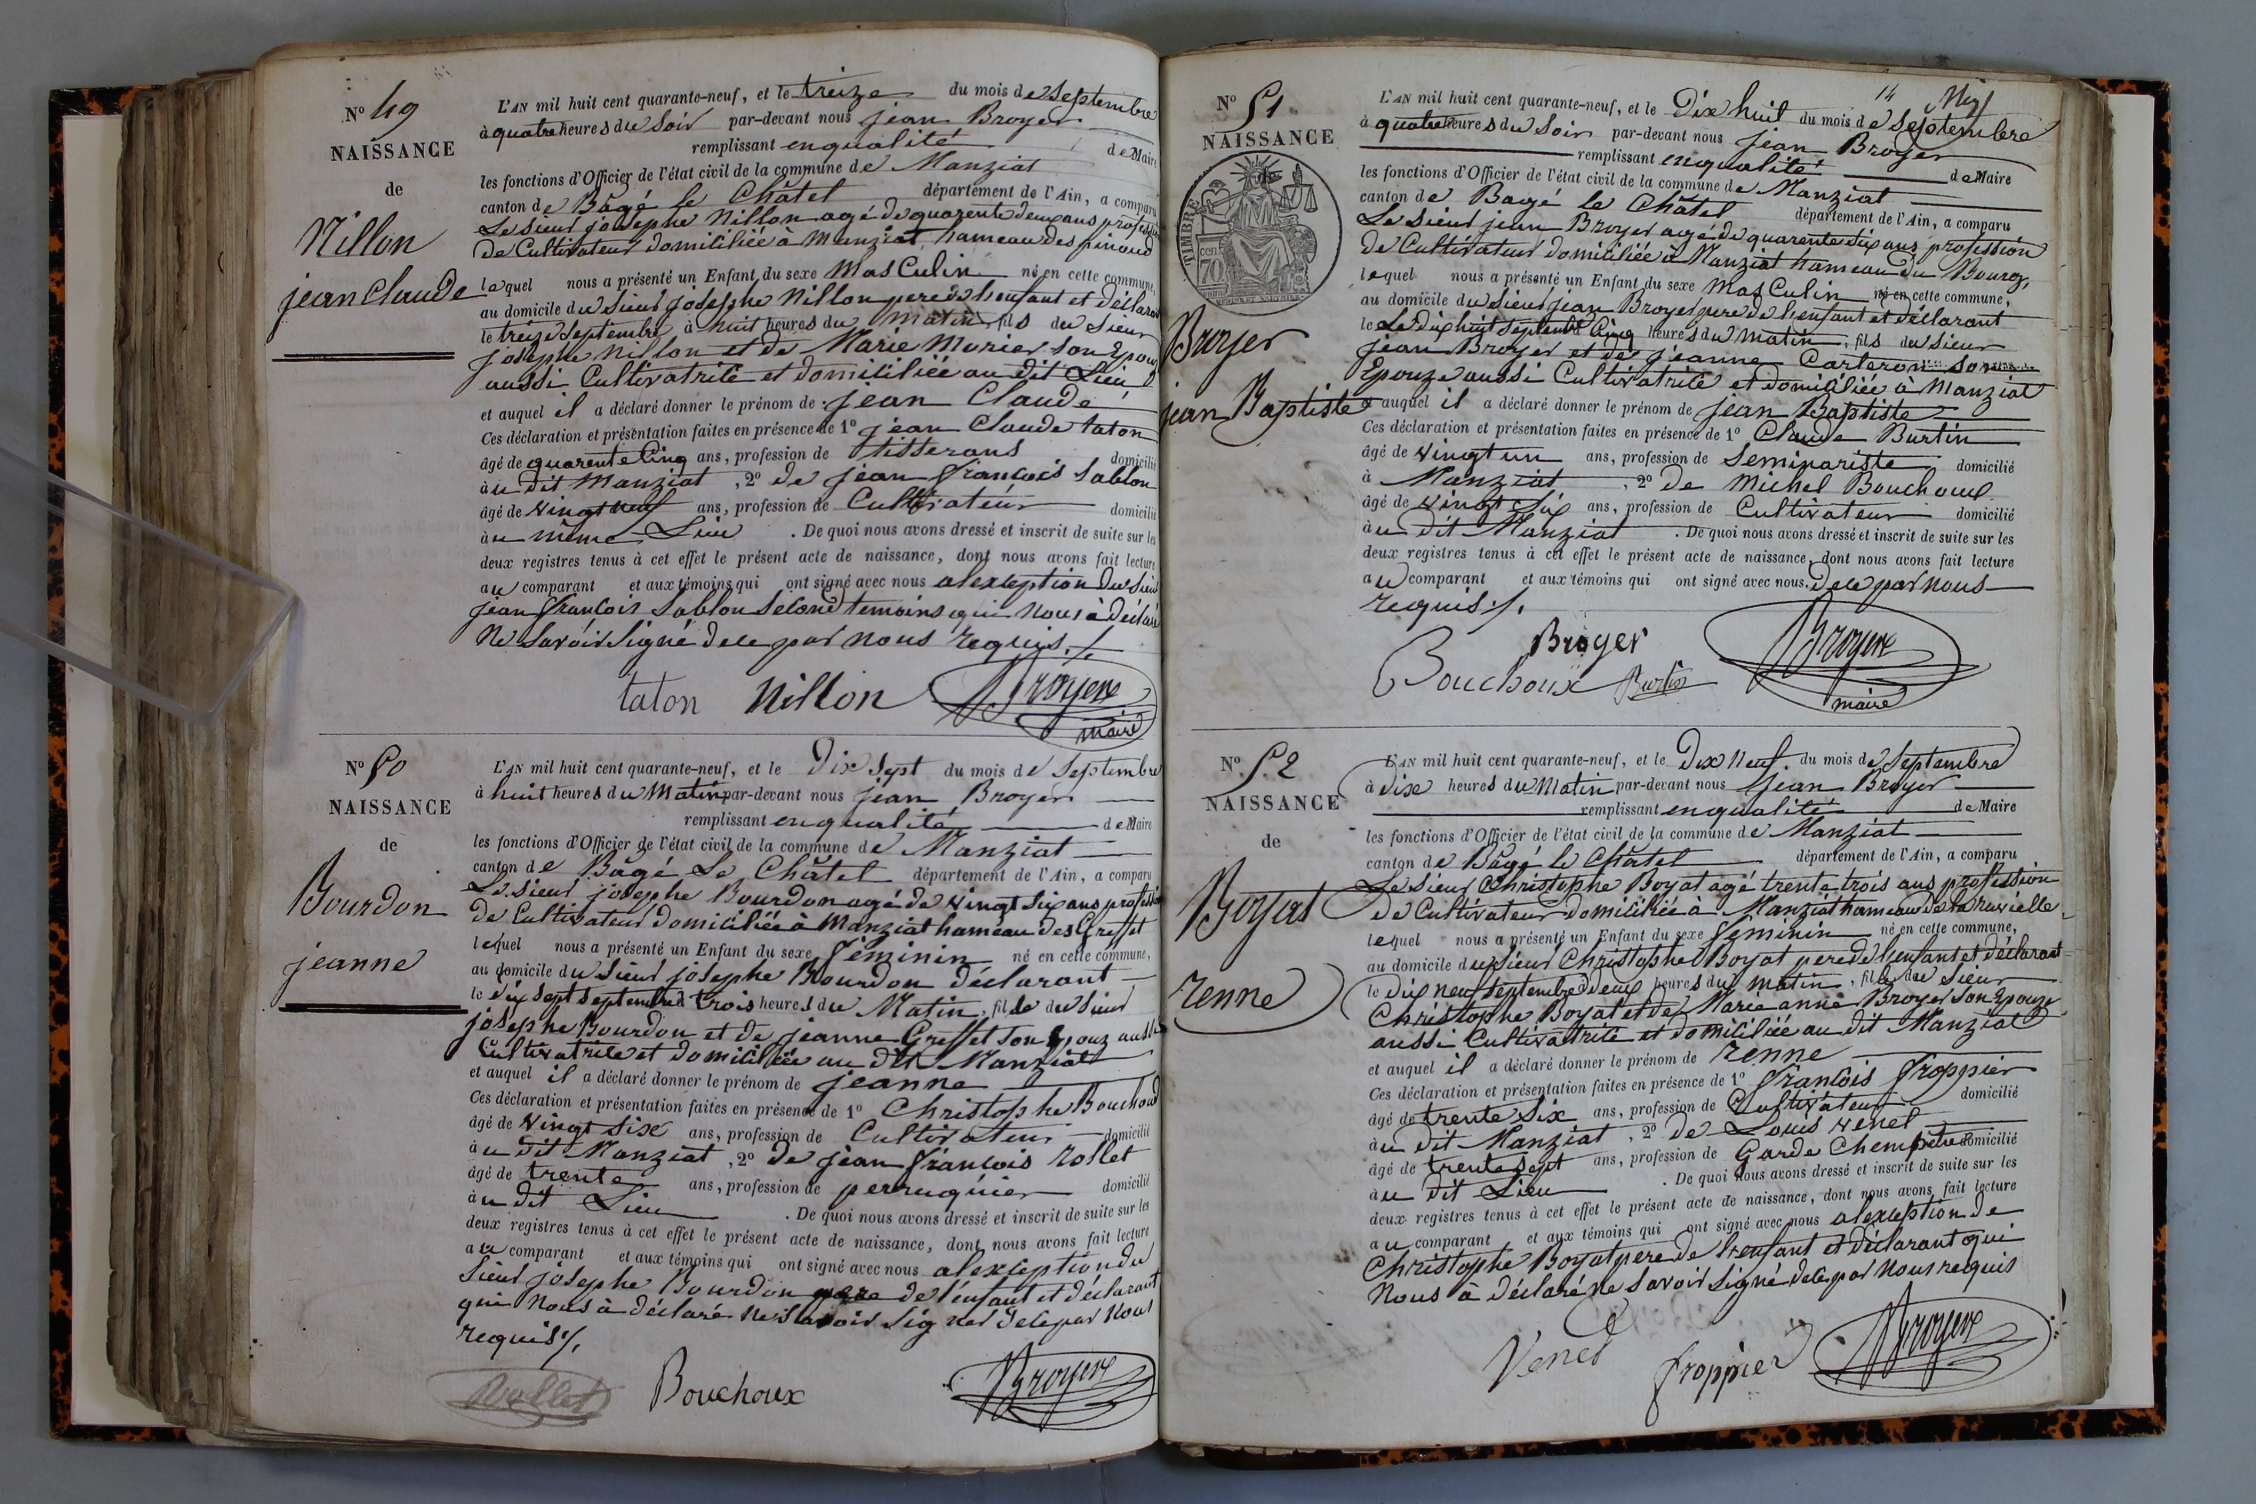 Nº 49
NAISSANCE
de
Nillon
jean Claude
L'AN mil huit cent quarante-neuf, et le treize du mois de Septembre
à quatre heures du Soir par-devant nous jean Broyer
remplissant enqualité de Maire
les fonctions d'Officier de l'état civil de la commune de Manziat
canton de Bâgé le Châtel département de l'Ain, a comparu
Le sieur josephe Nillon agé de quarente deux ans profession
de Cultivateur domiciliée à Manziat, hameau des pinoud
lequel nous a présenté un Enfant du sexe masCulin né en cette commune,
au domicile du sieur josephe Nillon pere de l'enfant et déclarant
le treize Septembre à huit heures du matin, fils du sieur
josephe Nillon et de Marie Morier son Epouz
aussi Cultivatrice et domiciliée au dit Lieu
et auquel il a déclaré donner le prénom de jean Claude
Ces déclaration et présentation faites en présence de 1º jean Claude taton
âgé de quarente Cinq ans, profession de tisserans domicilié
à u dit Manziat, 2º de jean françois Sablon
âgé de vingt neuf ans, profession de Cultivateur domicilié
à u même Lieu. De quoi nous avons dressé et inscrit de suite sur les
deux registres tenus à cet effet le présent acte de naissance, dont nous avons fait lecture
au comparant et aux témoins qui ont signé avec nous alexception du Sieur
jean françois Sablon Second temoins qui nous à déclaré
Ne savoir Signé de ce par nous requis ./.
taton Nillon Broyer
maire
Nº 50
NAISSANCE
de
Bourdon
jeanne
L'AN mil huit cent quarante-neuf, et le Dix Sept du mois de Septembre
à huit heures du Matin par-devant nous jean Broyer
remplissant enqualité de Maire
les fonctions d'Officier de l'état civil de la commune de Manziat
canton de Bâgé Le Châtel département de l'Ain, a comparu
Le sieur josephe Bourdon agé de vingt Six ans profession
de Cultivateur domiciliée à Manziat hameau des Greffet
lequel nous a présenté un Enfant du sexe féminin né en cette commune,
au domicile du Sieur josephe Bourdon déclarant
le dix sept septembre à trois heures du Matin, fille du sieur
josephe Bourdon et de jeanne Greffet son Epouz aussi
Cultivatrice et domiciliée au dit Manziat
et auquel il a déclaré donner le prénom de jeanne
Ces déclaration et présentation faites en présence de 1º Christophe Bouchoud
âgé de vingt Six ans, profession de Cultivateur domicilié
à u dit Manziat, 2º de jean françois rollet
âgé de trente ans, profession de perruquier domicilié
à u dit Lieu. De quoi nous avons dressé et inscrit de suite sur les
deux registres tenus à cet effet le présent acte de naissance, dont nous avons fait lecture
au comparant et aux témoins qui ont signé avec nous alexception du
sieur josephe Bourdon pere de l'enfant et déclarant
qui nous à déclaré ne Savoir Signer de ce par nous
requis ./.
Rollet Bouchoux Broyer
14
Nº 51
NAISSANCE
TIMBRE
70
Broyer
jean Baptiste
L'AN mil huit cent quarante-neuf, et le Dix huit du mois de Septembre
à quatre heures du Soir par-devant nous jean Broyer
remplissant enqualité de Maire
les fonctions d'Officier de l'état civil de la commune de Manziat
canton de Bagé le Châtel département de l'Ain, a comparu
Le sieur jean Broyer agé de quarente six ans profession
de Cultivateur domiciliée à Manziat hameau du Bourg,
lequel nous a présenté un Enfant du sexe masCulin né en cette commune,
au domicile du sieur jean Broyer pere de l'enfant et déclarant
le Le dix huit septembre Cinq heures du matin, fils du sieur
jean Broyer et de jeanne Carteron son
Epouze aussi Cultivatrice et domiciliée à Manziat
et auquel il a déclaré donner le prénom de jean Baptiste
Ces déclaration et présentation faites en présence de 1º Claude Burtin
âgé de vingt un ans, profession de Seminariste domicilié
à Manziat, 2º de Michel Bouchoux
âgé de vingt Six ans, profession de Cultivateur domicilié
à u dit Manziat. De quoi nous avons dressé et inscrit de suite sur les
deux registres tenus à cet effet le présent acte de naissance, dont nous avons fait lecture
au comparant et aux témoins qui ont signé avec nous. de ce par nous
requis ./.
Broyer Broyer
Bouchoux Burtin
maire
Nº 52
NAISSANCE
de
Boyat
renne
L'AN mil huit cent quarante-neuf, et le Dix Neuf du mois de Septembre
à dix heures du Matin par-devant nous jean Broyer
remplissant enqualité de Maire
les fonctions d'Officier de l'état civil de la commune de Manziat
canton de Bâgé le Châtel département de l'Ain, a comparu
Le sieur Christophe Boyat agé trente trois ans profession
de Cultivateur domiciliée à Manziat hameau de la ruxielle
lequel nous a présenté un Enfant du sexe feminin né en cette commune,
au domicile du sieur Christophe Boyat pere de l'enfant et déclarant
le dix neuf septembre à deux heures du matin, fille du sieur
Christophe Boyat et de Marie anne Broyer son Epouze
aussi Cultivatrice et domiciliée au dit Manziat
et auquel il a déclaré donner le prénom de renne
Ces déclaration et présentation faites en présence de 1º françois froppier
âgé de trente Six ans, profession de Cultivateur domicilié
à u dit Manziat, 2º de Louis venet
âgé de trente sept ans, profession de Garde Chempêtre domicilié
à u dit Lieu. De quoi nous avons dressé et inscrit de suite sur les
deux registres tenus à cet effet le présent acte de naissance, dont nous avons fait lecture
au comparant et aux témoins qui ont signé avec nous alexception de
Christophe Boyat pere de l'enfant et déclarant qui
Nous à déclaré ne savoir Signé de ce par nous requis
Venet froppier Broyer